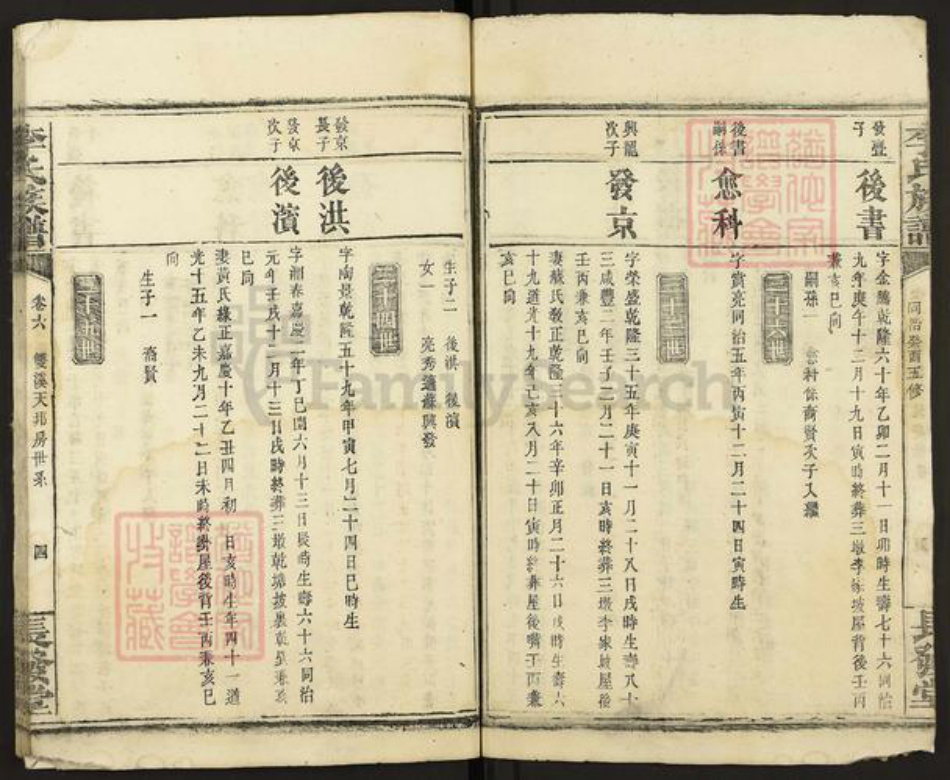 李氏族譜
同治癸酉五修
長發堂
發璧
子
後書
字金騰乾隆六十年乙卯二月十一日卯時生壽七十六同治
九年庚午十二月十九日寅時終葬三墩李家坡屋背後壬丙
兼亥巳向
嗣孫一
三十六世
後書
嗣孫
愈科
字賞亮同治五年丙寅十二月二十四日寅時生
三十三世
興龍
次子
發京
字榮盛乾隆三十五年庚寅十一月二十八日戌時生壽八十
三咸豐二年壬子二月二十一日亥時終葬三墩李家坡屋後
壬丙兼亥巳向
妻戴氏發正乾隆三十六年辛卯正月二十六日戌時生壽六
十九道光十九年己亥八月二十日寅時終葬屋後嘴壬丙兼
亥巳向
生子二 後洪 後濱
女一
三十四世
發京
長子
後洪
字南景乾隆五十九年甲寅七月二十四日巳時生
發京
次子
後濱
字湘春嘉慶二年丁巳閏六月十三日辰時生壽六十六同治
元年壬戌十二月十三日戌時終葬三墩乾塘坡裏乾巽兼亥
巳向
妻黃氏緣正嘉慶十年乙丑四月初 日亥時生年四十一道
光十五年乙未九月二十二日未時終葬屋後背壬丙兼亥巳
向
生子一 裔賢
三十五世
李氏族譜
卷六 雙溪天邦房世系
四
長發堂
FamilySearch